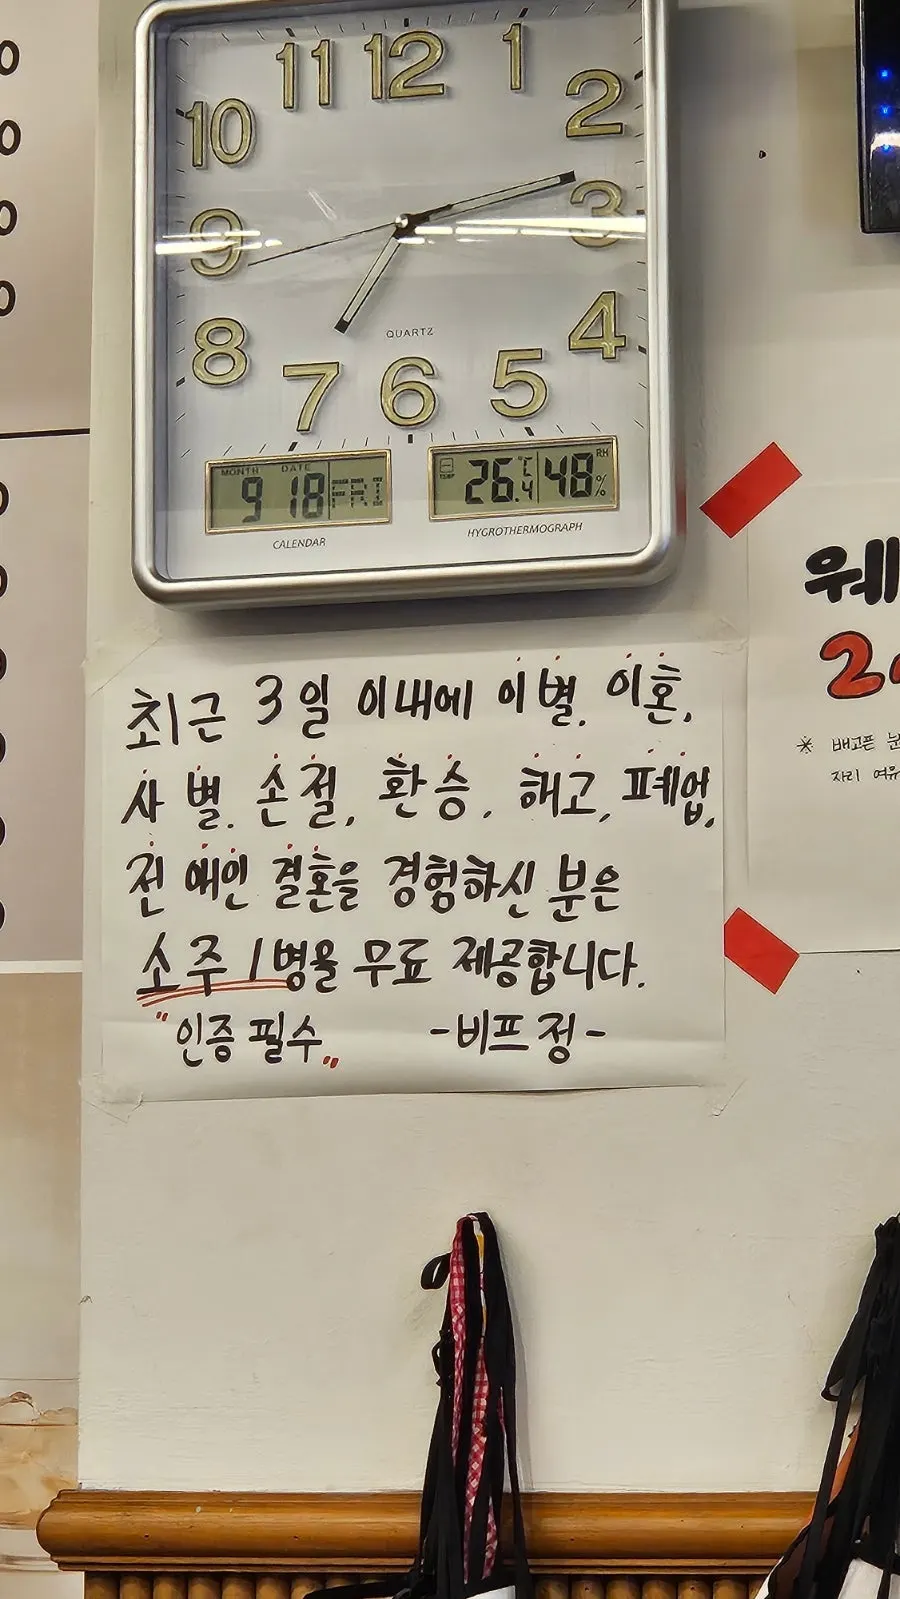 0
0
0
0
11 12 1
10 2
9 3
8 4
7 6 5
QUARTZ
MONTH DATE
9 18 FRI
CALENDAR
TEMP 26.4 ℃ 48 % RH
HYGROTHERMOGRAPH
최근 3일 이내에 이별, 이혼,
사별, 손절, 환승, 해고, 폐업,
전 애인 결혼을 경험하신 분은
소주 1병을 무료 제공합니다.
"인증 필수„ -비프 정-
웨
2
※ 배고픈 분
자리 여유